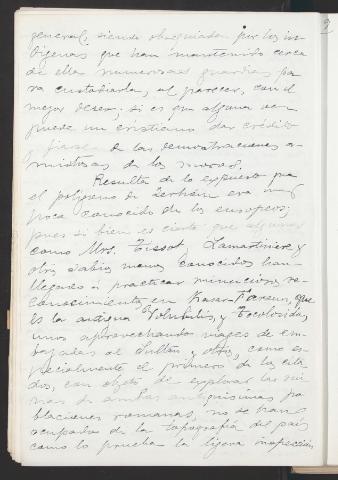 general, siendo obsequiados por los in-
dígenas que han mantenido cerca
de ellas numerosas guardias pa
ra custodiarla, al parecer, con el
mejor deseo; si es que alguna vez
puede un cristiano dar crédito
y fiarse de las demostraciones a-
mistosas de los moros.
Resulta de lo expuesto que
el poligono de Zerhón era muy
poco conocido de los europeos;
pues si bien es cierto que algunos
como Mrs. Tissot, Lamartiniere y
otros sabios menos conocidos han
llegado á practicar minuciosos re-
conocimientos en Kasar-Faraun, que
es la antigua Volubilis, y Tocolosida,
unos aprovechando viages de em-
bajadas al Sultán y otros, como es-
pecialmente el primero de los cita-
dos, con objeto de explorar las rui
nas de ambas antiquísimas po
blaciones romanas, no se han
ocupado de la topografía del país
como lo prueba la ligera inspección
2